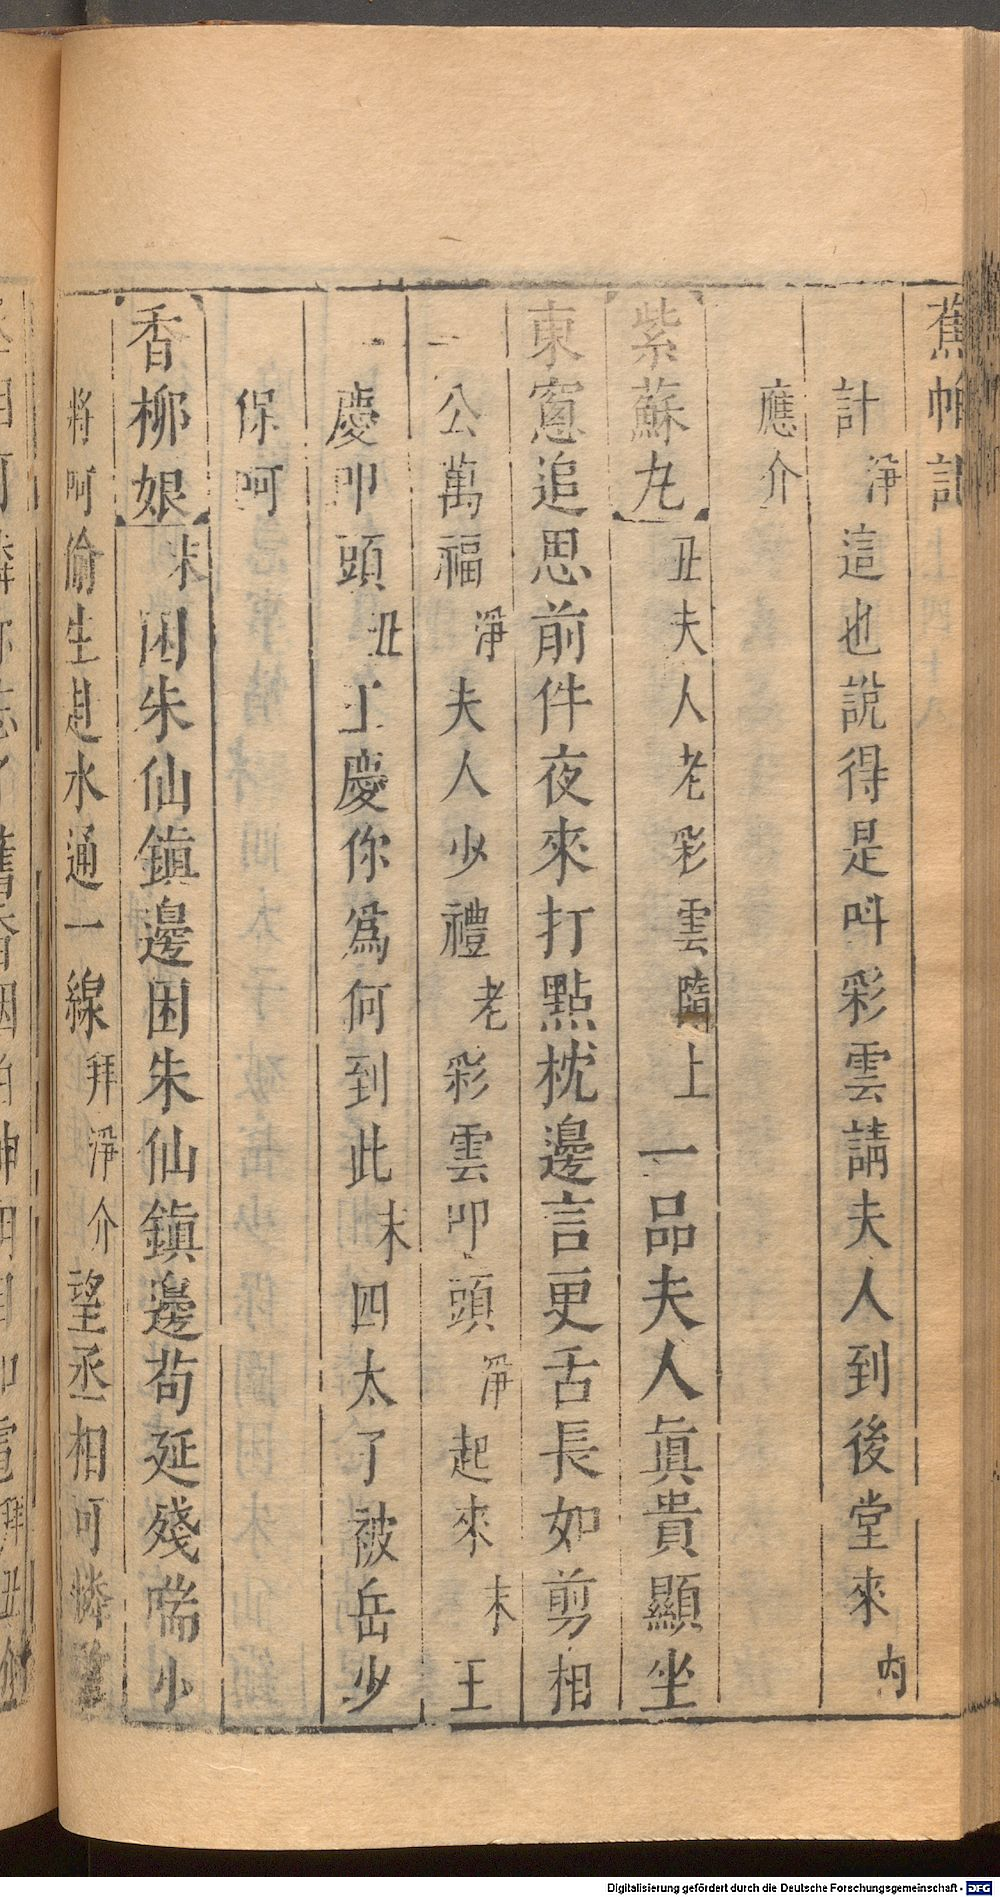 蕉帕記
計淨這也說得是呌彩雲請夫人到後堂來內
應介
紫蘇丸丑夫人老彩雲隨上一品夫人眞貴顯坐
東窓追思前件夜來打點枕邊言更舌長如剪相
公萬福淨夫人少禮老彩雲叩頭淨起來末王
慶叩頭丑王慶你爲何到此末四太了被岳少
保呵
香柳娘末困朱仙鎮邊困朱仙鎮邊苟延殘喘小
將呵偷生赴水通一線拜淨介望丞相可憐
Digitalisierung gefördert durch die Deutsche Forschungsgemeinschaft - DFG